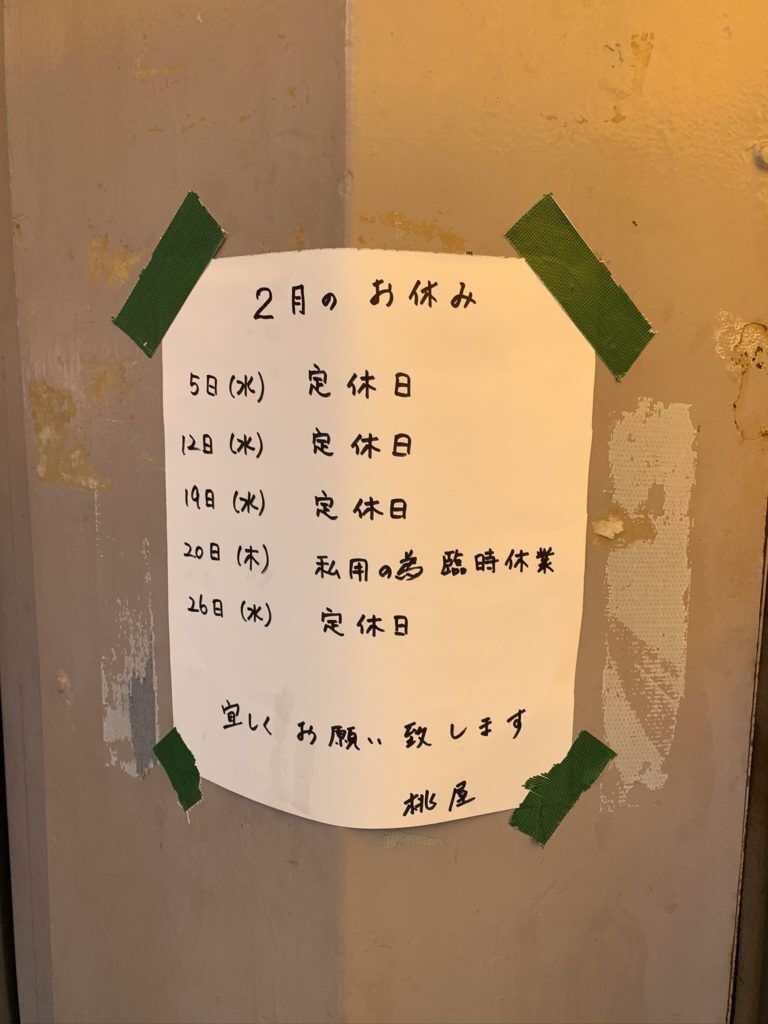 2月の お休み
5日(水) 定休日
12日(水) 定休日
19日(水) 定休日
20日(木) 私用の為 臨時休業
26日(水) 定休日
宜しく お願い 致します
桃屋